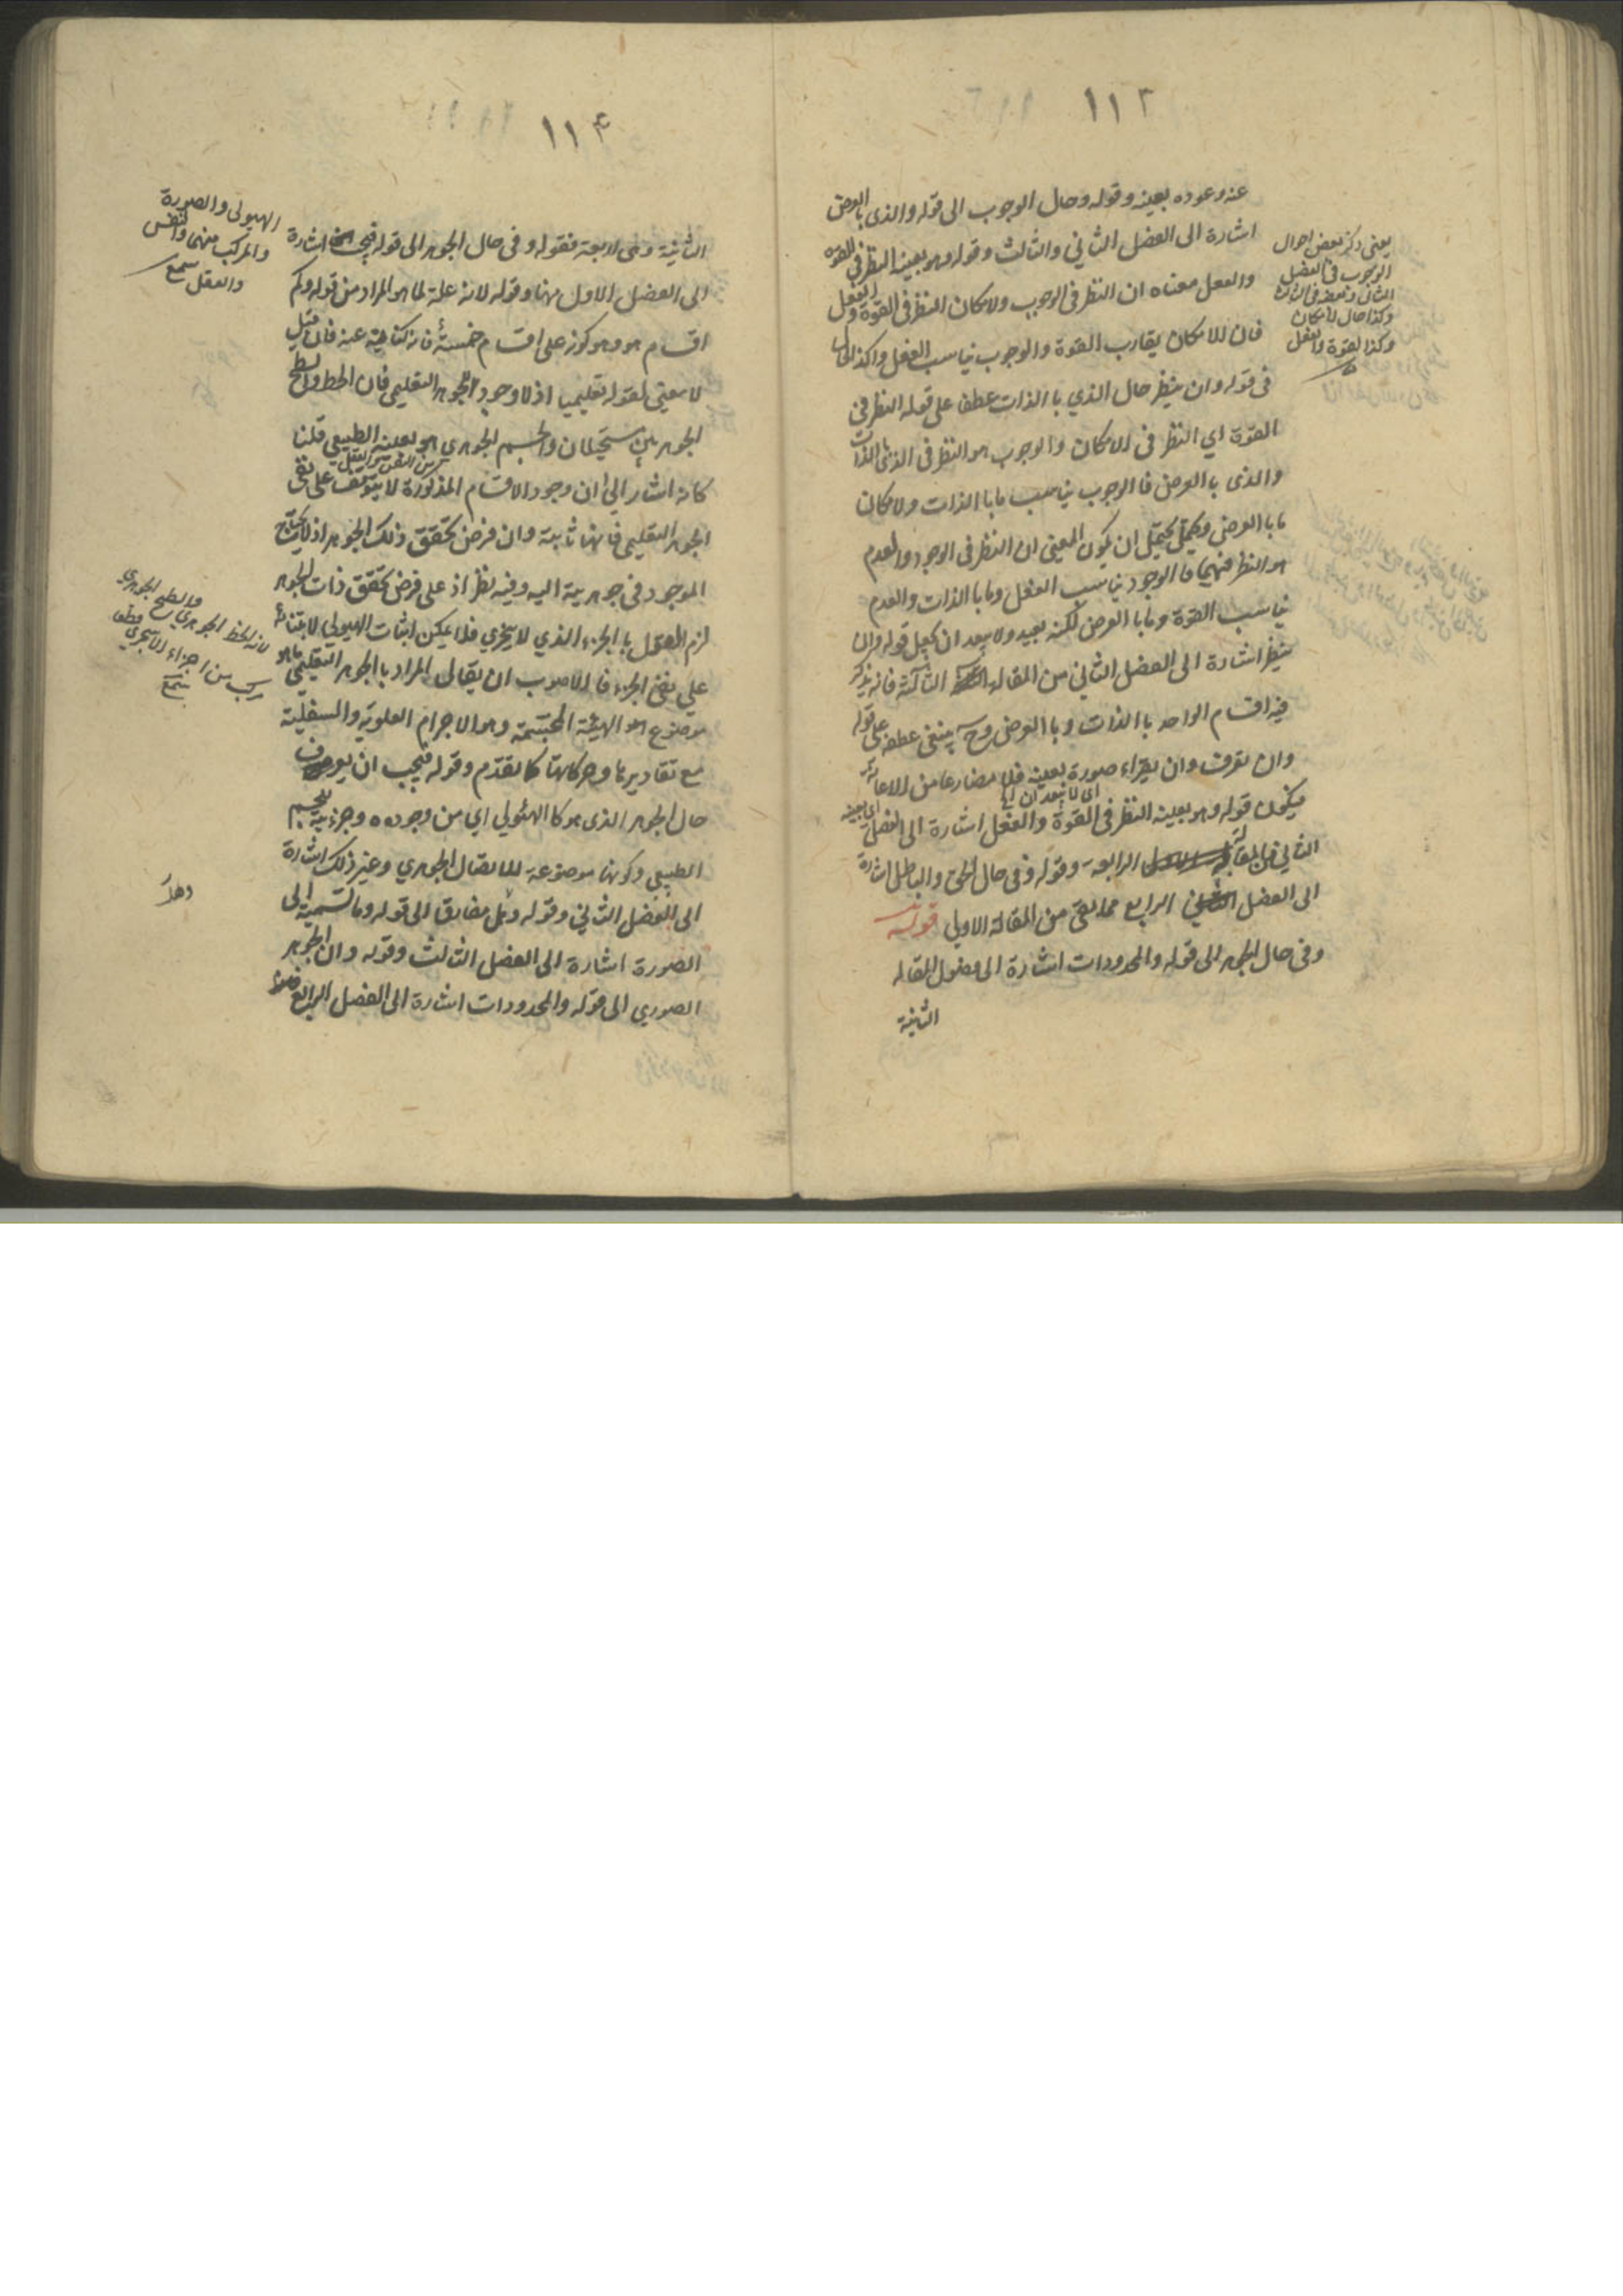 ١١٢
عنه وعوده بعينه وقوله وحال الوجوب الى قوله والذى بالعرض
اشارة الى الفصل الثاني والثالث وقوله وهو بعينه النظر في القوة
والفعل معناه ان النظر فى الوجوب والامكان النظر فى القوة والفعل
فان للامكان يقارب القوة والوجوب يناسب الفعل وكذا الحال
فى قوله وان ينظر حال الذي باالذات عطف على قوله النظر فى
القوة اي النظر فى الامكان والوجوب هو النظر فى الذي باالذات
والذى باالعرض فاالوجوب يناسب ماباالذات والامكان
ماباالعرض ويحتمل ان يكون المعنى ان النظر فى الوجود والعدم
هو النظر فيهما فاالوجود يناسب الفعل وماباالذات والعدم
يناسب القوة وماباالعرض لكنه بعيد ولا يبعد ان يجعل قوله وان
ينظر اشارة الى الفصل الثاني من المقالة الثالثة فانه يذكر
فيه اقسام الواحد باالذات وباالعرض وح ينبغى عطفه على قوله
وان تعرف وان يقراء صورة بعينه فلا مضارعا من الاعانة
اى لا يبعد ان
فيكون قوله وهو بعينه النظر فى القوة والفعل اشارة الى الفصل
الثاني من المقالة الرابعة وقوله وفى حال الحق والباطل اشارة
الى الفصل الرابع مما بقى من المقالة الاولى قوله
وفى حال الجوهر الى قوله والمحدودات اشارة الى فصول المقاله
الثانية
يعنى ذكر بعض احوال
الوجوب فى الفصل
الثانى وبعضه فى الثالث
وكذا حال الامكان
وكذا القوة والفعل
١١٣
الثانية وهى اربعة فقوله وفى حال الجوهر الى قوله فيجب اشارة
الى الفصل الاول منها وقوله لانه علة لما هو المراد من قوله وكم
اقسام هو وهو كونه على اقسام خمسة فانه كناية عنه فان قيل
لا معنى لقوله تعليميا اذ لا وجود للجوهر التعليمى فان الخط والسطح
الجوهريين مستحيلان والجسم الجوهرى هو بعينه الطبيعي قلنا
كانه اشار الى ان وجود الاقسام المذكورة لا يتوقف على نفى
الجوهر التعليمى فانها ثابتة وان فرض تحقق ذلك الجوهر اذ لا يحتاج
الموجود فى جوهريته اليه وفيه نظر اذ على فرض تحقق ذات الجوهر
لزم القول باالجزء الذي لا يتجزي فلا يمكن اثبات الهيولى لابتنائه
على نفى الجزء فاالاصوب ان يقال المراد باالجوهر التعليمى ما هو
موضوع هو الهيئة المجسمة وهو الاجرام العلوية والسفلية
مع تقاديرها وحركاتها كما تقدم وقوله فيجب ان يعرف
حال الجوهر الذى هو كاالهيولى اي من وجوده وجزئيته للجسم
الطبيعي وكونها موضوعة للاتصال الجوهري وغير ذلك اشارة
الى الفصل الثاني وقوله وهل مفارق الى قوله وما نسبته الى
الصورة اشارة الى الفصل الثالث وقوله وان الجوهر
الصوري الى قوله والمحدودات اشارة الى الفصل الرابع
الهيولى والصورة
والمركب منهما والنفس
والعقل سمع
لانه الخط الجوهري والسطح الجوهري
مركب من اجزاء لا يتجزي
سمع